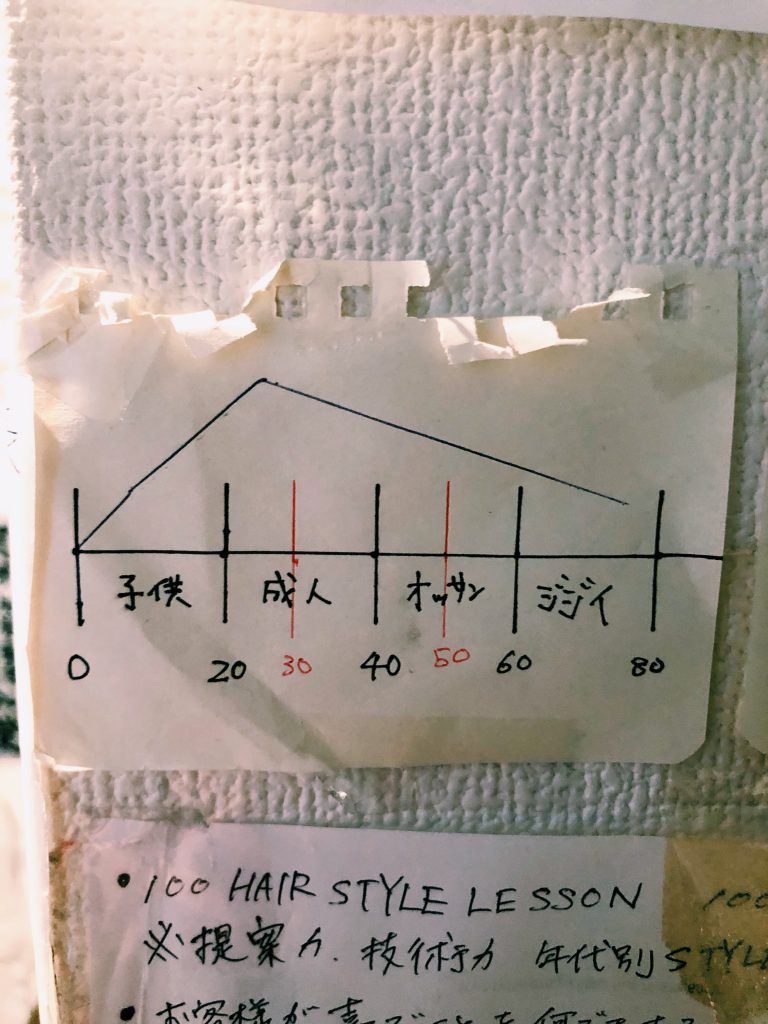 子供 成人 オッサン ジジイ
0 20 30 40 50 60 80
・100 HAIR STYLE LESSON 100
※提案力、技術力 年代別STYLE
・お客様が喜ぶことを何でもする